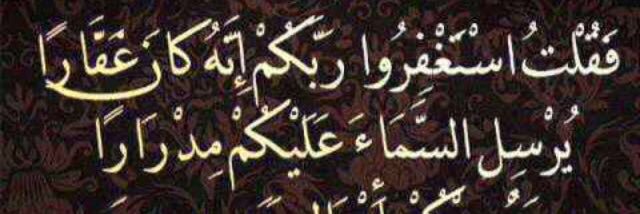 فَقُلْتُ اسْتَغْفِرُوا رَبَّكُمْ إِنَّهُ كَانَ غَفَّارًا
يُرْسِلِ السَّمَاءَ عَلَيْكُمْ مِدْرَارًا